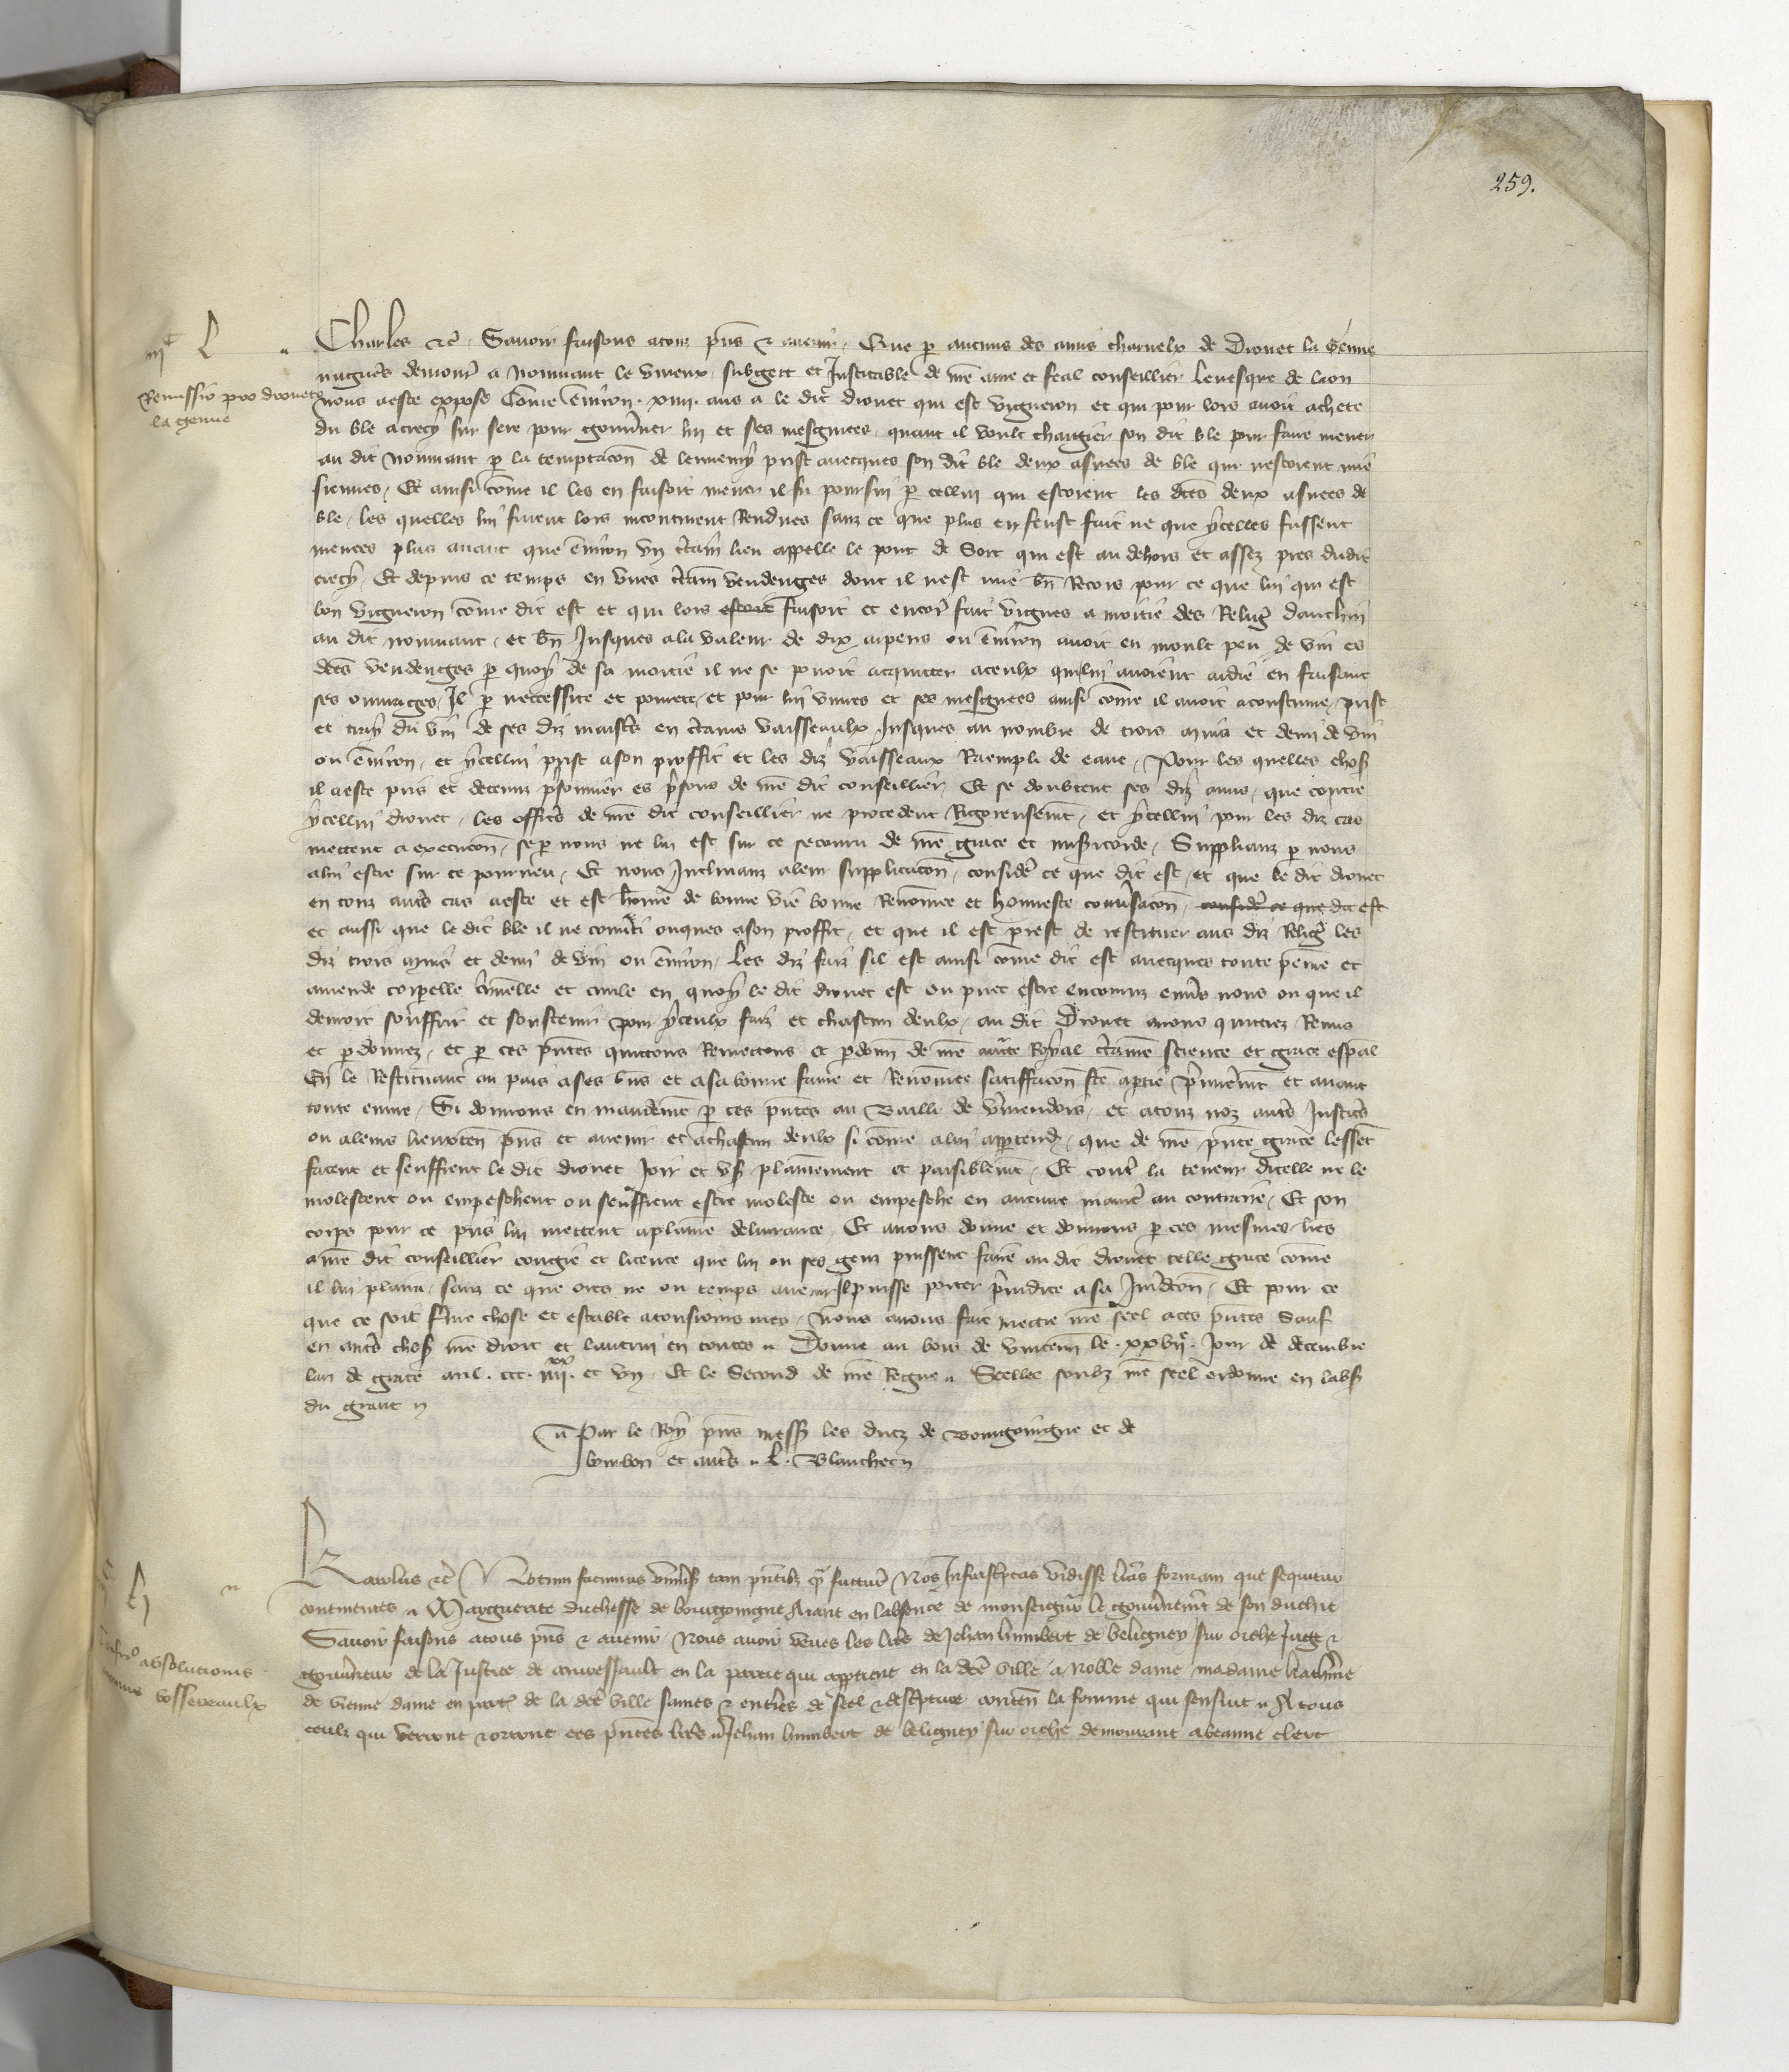 259.
iiiᶜ L
Remissio pro droneto
la genne
Charles etc̃. Savoir faisons a touz p̃ns & avenir. Que p̱ aucuns des amis charnelx de Dronet la Genne
nagueres demour̃ a Nouviant le vineux, subgect et Justicable de nr̃e ame et feal conseillier levesque de laon
nous a este expose Com̃e env̾iron .xiiii. ans a le dit dronet qui est vigneron et qui pour lors avoit achete
du ble a crecy sur sere pour gouv̾ner lui et ses mesgniees, quant il voult chargier son dit ble pour faire mener
au dit Nouviant p̱ la temptac̃on de lennemy prist avecques son dit ble deux asnees de ble qui nestoient mie
siennes, Et ainsi com̃e il les en faisoit mener il fu poursui p̱ cellui qui estoient les dc̃es deux asnees de
ble, les quelles lui furent lors incontinent Rendues sanz ce que plus en feust fait ne que ycelles fussent
menees plus avant que env̾iron un c̾tain lieu appelle le pont de Sort qui est au dehors et assez pres dudit
crecy, Et depuis ce temps en unes c̾tain̾ vendenges dont il nest mie bn̄ Recors pour ce que lui qui est
bon vigneron com̃e dit est et qui lors estoit faisoit et encor̾ fait vignes a moitie des Relig̾ dauchin
au dit nouviant, et bn̄ Jusques a la valeur de dix arpens ou env̾iron avoit eu moult peu de vin es
dc̃es vendenges p̱ quoy de sa moitie il ne se povoit acquitter a ceulx qui lui avoient aidie en faisant
ses ouvrages, Il p̱ neccessite et povrete, et pour lui vivres et ses mesgnees ainsi com̃e il avoit acoustume, prist
et tray du vin de ses diz maistr̾s en c̾tains vaisseaulx Jusques au nombre de trois muis et demi de vin
ou env̾iron, et ycellui prist a son proffit et les diz vaisseaux Raempli de eaue, Pour les quelles chos̾
il a este pris et detenuz p̾sonnier es p̾sons de nr̃e dit conseillier, Et se doubtent ses diz amis, que contre
ycellui dronet, les offic̾s de nr̃e dit conseillier ne procedent Rigoreusem̃t, et ycellui pour les diz cas
mettent a execuc̃on, se p̱ nous ne lui est sur ce secouru de nr̃e grace et mis̾icorde, Supplianz p̱ nous
a lui estre sur ce pourveu, Et nous Inclinanz a leur supplicac̃on, consider̾ ce que dit est, et que le dit dronet
en touz autr̾s cas a este et est hom̃e de bonne vie bonne Renom̃ee et honneste conv̾sac̃on, consider̾ ce que dit est
et aussi que le dit ble il ne conv̾ti onques a son proffit, et que il est prest de restituer aus diz Relig̾ les
diz trois muis et demi de vin ou env̾iron, Les diz faiz sil est ainsi com̃e dit est avecques toute peine et
amende corporelle c̾minelle et civile en quoy le dit dronet est ou puet estre encouruz env̾s nous ou que il
devroit souffrir et soustenir pour yceulx faiz et chascun deulx, au dit Dronet avons quittiez Remis
et p̱donnez, et p̱ ces p̃ntes quittons Remettons et p̱donn̾ de nr̃e auct̾te Royal c̾taine science et grace esp̃al
En le Restituant au pais a ses bn̄s et a sa bonne fame et Renom̃ee satiffac̃on fc̃e a p̱tie p̾miem̃t et avant
toute euvre, Si donnons en mandem̃e p̱ ces p̃ntes au Bailli de v̾mendois, et a touz noz autr̾s Justic̾s
ou a leurs lieuxten̾ p̃ns et avenir et a chascun deulx si com̃e a lui app̱tendr̾, que de nr̃e p̃nte grace lesse̾t
facent et seuffrent le dit dronet Joir et us̾ plainement et paisiblem̃t, Et contr̾ la teneur dicelle ne le
molestent ou empeschent ou seuffrent estre moleste ou empeschie en aucune manier̾ au contraire, Et son
corps pour ce pris lui mettent a plaine delivrance, Et avons donne et donnons p̱ ces mesmes lr̃es
a nr̃e dit conseillier congie et licence que lui ou ses genz puissent faire au dit dronet telle grace com̃e
il lui plaira, sanz ce que ores ne ou temps avenir Il puisse porter p̾judice a sa Jur̾dicc̃on, Et pour ce
que ce soit ferme chose et estable a tousiours mes, Nous avons fait mettre nr̃e seel a ces p̃ntes Sauf
en autr̾s chos̾ nr̃e droit et lautrui en toutes. Donne au bois de vincenn̾ le .xxvii.ᵉ Jour de decembre
lan de grace mil .ccc. iiiiˣˣ. et un, Et le Second de nr̃e Regne. Seellee soubz nr̃e seel ordonne en labs̾
du grant
Par le Roy p̃ns mess̾ les ducz de Bourgoingne et de
bourbon et autr̾s. L. Blanchet
Karolus etc̃ Notum facimus univ̾sis tam p̃ntibz q̃ futur̾ Nos Infrascriptas vidisse lr̃as formam que sequitur
continentes. Marguerite duchesse de bourgoingne Aiant en labsence de monseigneur le gouv̾nem̃t de son duchie
Savoir faisons a tous p̃ns & avenir, Nous avoir veues les lr̃es de Jehan humbert de beligney sur oiche Juge &
gouv̾neur de la Justice de auvessault en la partie qui app̱tient en la dc̃e ville a Noble dame madame kath̾ine
de vienne dame en part̾ de la dc̃e ville saines & entieres de seel & descripture conten̾ la forme qui sensuit. A tous
ceuls qui verront & orront ces p̃ntes lr̃es Jehan humbert de beligney sur oiche demourant a beaune clerc
absolutionis
bossereaulx